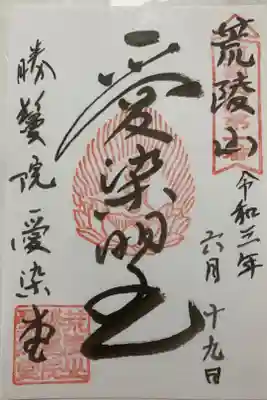 荒陵山
令和三年
六月十九日
愛染明王
勝鬘院愛染堂